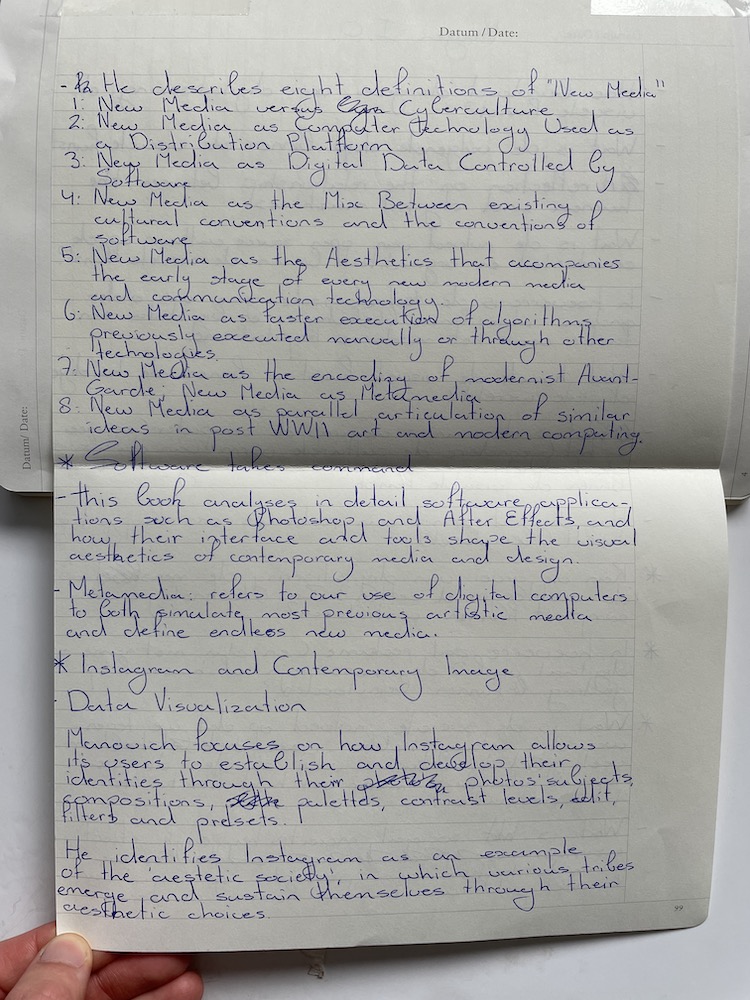 Datum / Date:
- He describes eight definitions of "New Media"
1: New Media versus Cyberculture
2: New Media as Computer Technology Used as
a Distribution Platform
3: New Media as Digital Data Controlled by
Software
4: New Media as the Mix Between existing
cultural conventions and the conventions of
software
5: New Media as the Aesthetics that acompanies
the early stage of every new modern media
and communication technology.
6: New Media as faster execution of algorithms
previously executed manually or through other
technologies.
7: New Media as the encoding of modernist Avant-
Garde; New Media as Metamedia
8: New Media as parallel articulation of similar
ideas in post WWII art and modern computing.
Datum / Date:
* Software takes command
- this book analyses in detail software applica-
tions such as Photoshop and After Effects, and
how their interface and tools shape the visual
aesthetics of contemporary media and design.
- Metamedia: refers to our use of digital computers
to both simulate most previous artistic media
and define endless new media.
* Instagram and Contemporary Image
- Data Visualization
Manovich focuses on how Instagram allows
its users to establish and develop their
identities through their photos' subjects,
compositions, palettes, contrast levels, edit,
filters and presets.
He identifies Instagram as an example
of the 'aestetic society', in which various tribes
emerge and sustain themselves through their
aesthetic choices.
99